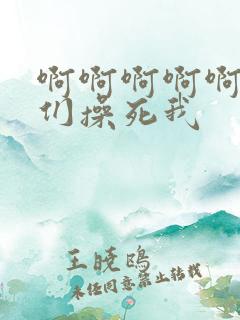 啊啊啊啊啊
们操死我
王晓鸥
未经同意禁止转载